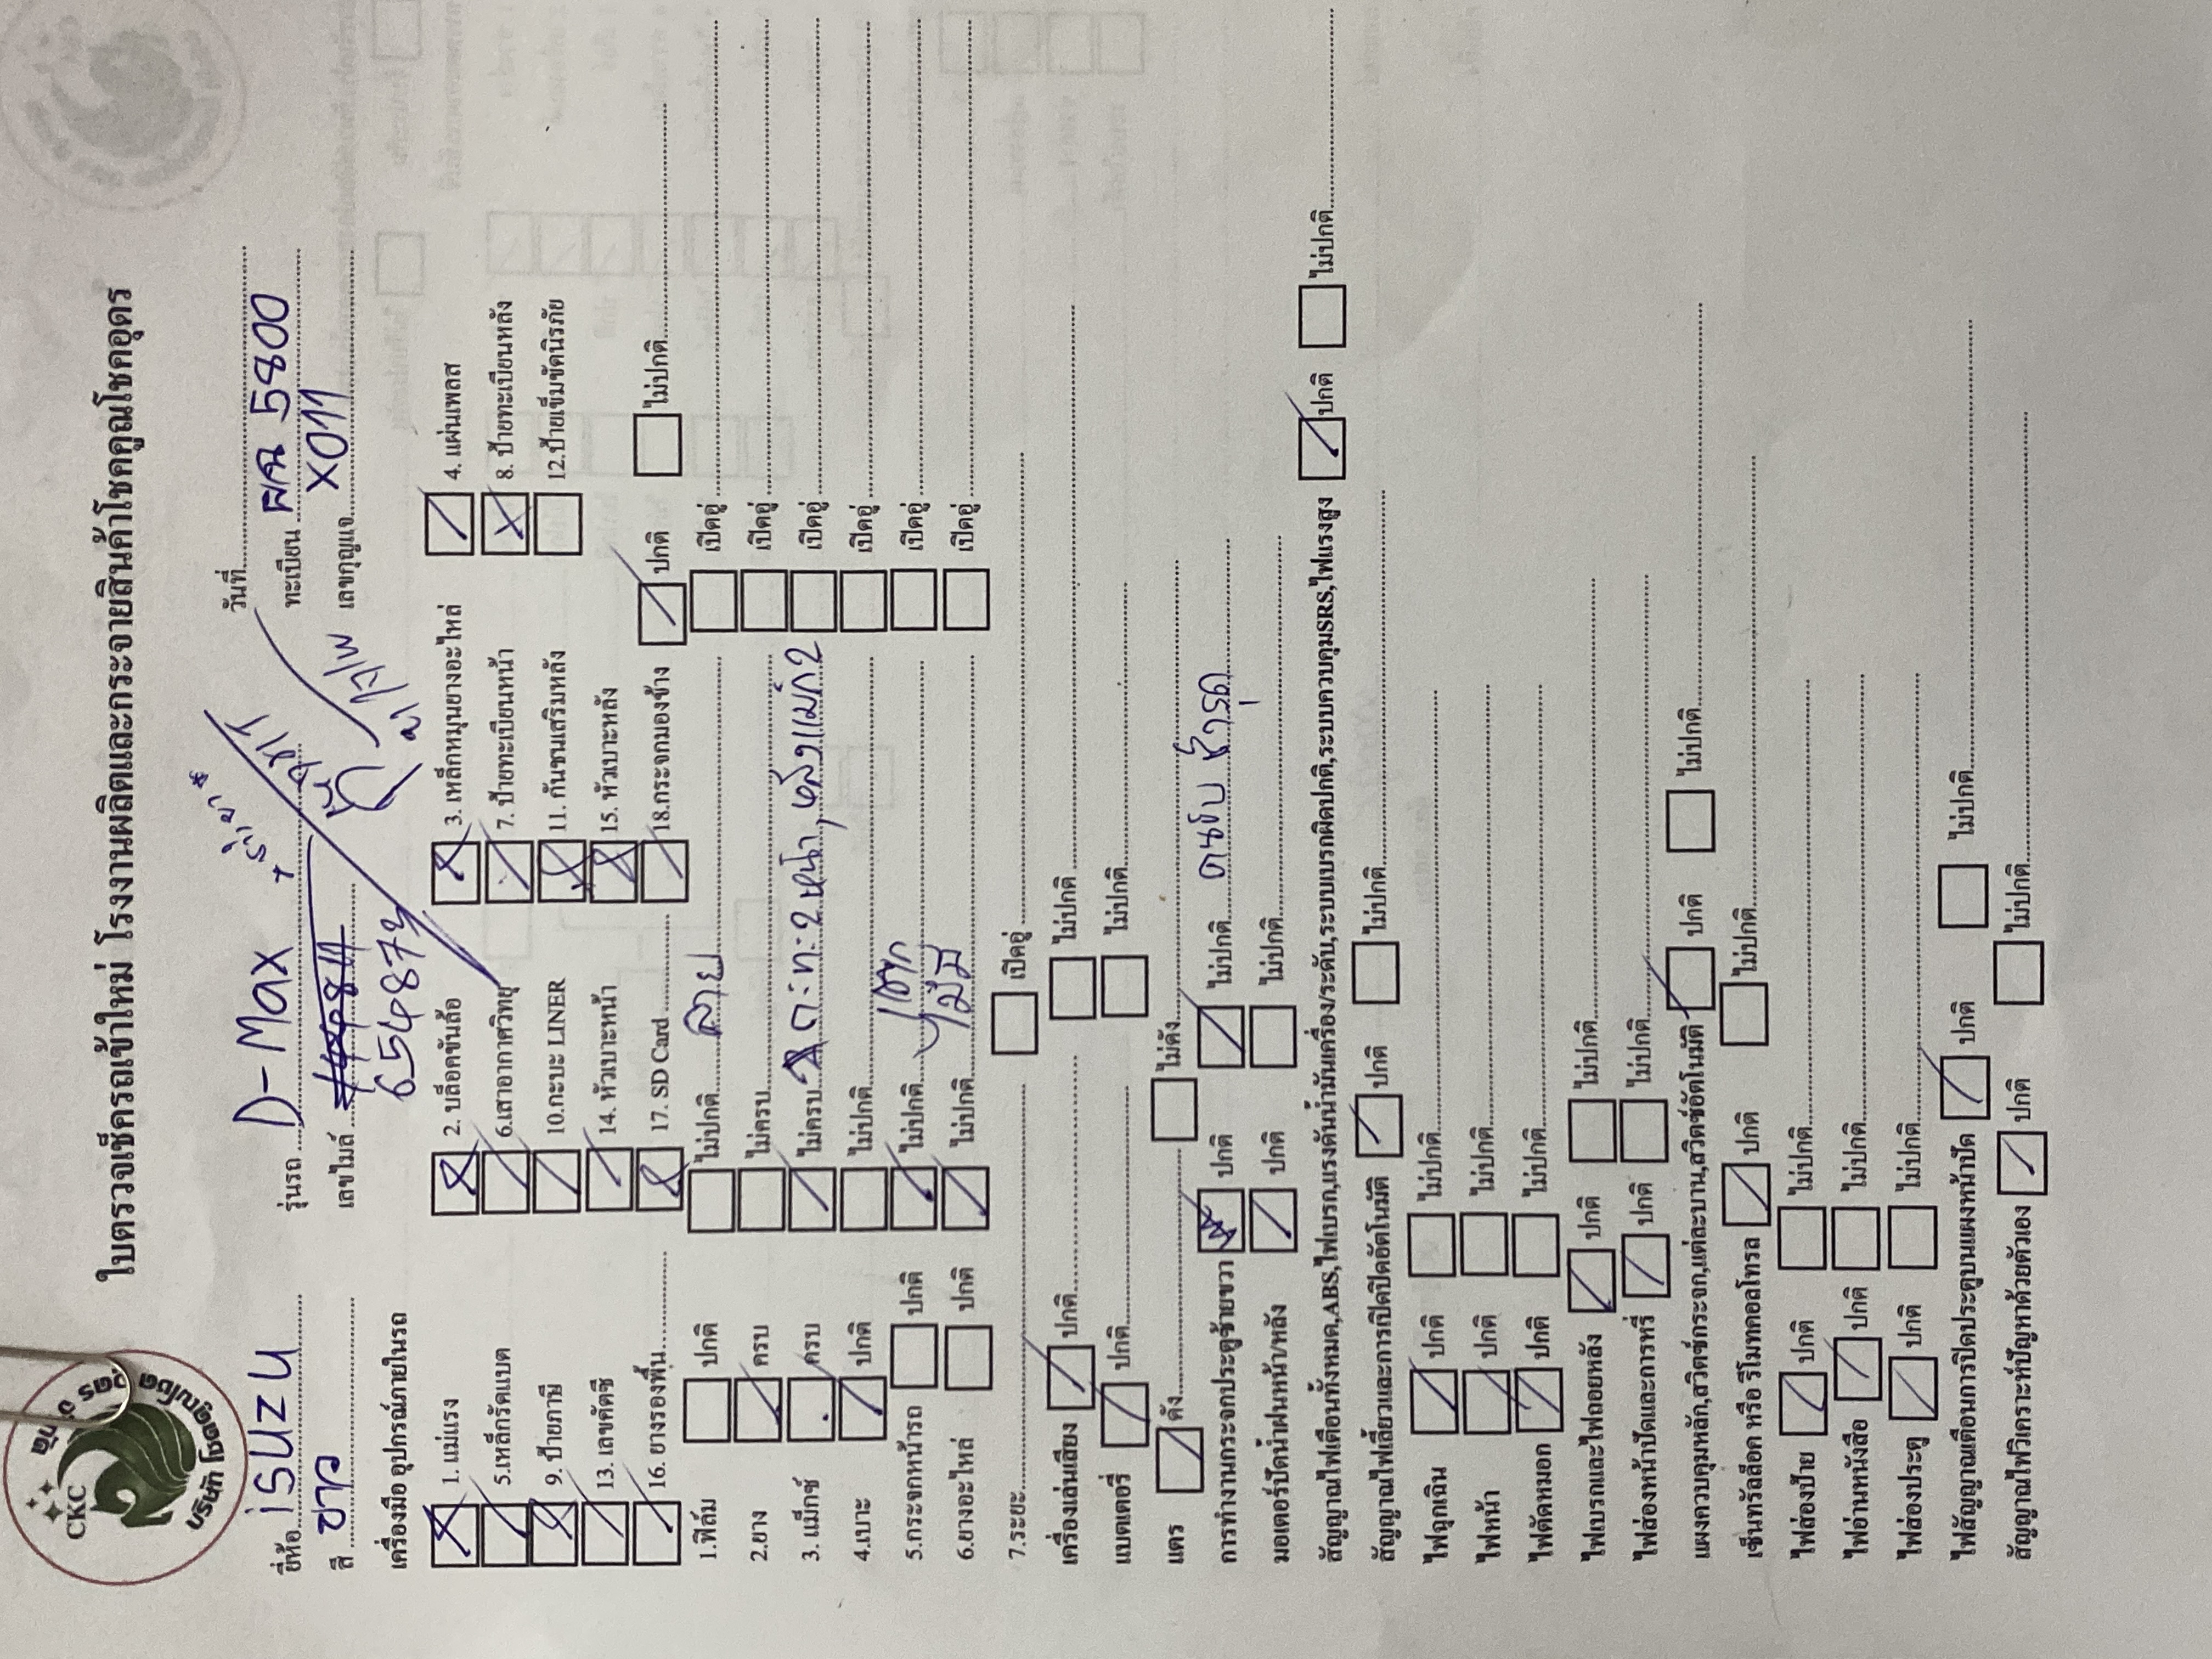 CKC
บริษัท โชคคูณโชค อุดร จำกัด
ใบตรวจเช็ครถเข้าใหม่ โรงงานผลิตและกระจายสินค้าโชคคูณโชคอุดร
วันที่
ยี่ห้อ isuzu รุ่นรถ D-Max ทะเบียน 5800
สี ขาว เลขไมล์ เลขกุญแจ X011
เครื่องมือ อุปกรณ์ภายในรถ
1. แม่แรง 2. บล็อคขันล้อ 3. เหล็กหมุนยางอะไหล่ 4. แผ่นเพลส
5.เหล็กรัดแบต 6.เสาอากาศวิทยุ 7. ป้ายทะเบียนหน้า 8. ป้ายทะเบียนหลัง
9. ป้ายภาษี 10.กระบะ LINER 11. กันชนเสริมหลัง 12.ป้ายเข็มขัดนิรภัย
13. เลขคัตซี 14. หัวเบาะหน้า 15. หัวเบาะหลัง
16. ยางรองพื้น 17. SD Card 18.กระจกมองข้าง ปกติ ไม่ปกติ
1.ฟิล์ม ปกติ ไม่ปกติ ลาย เปิดอู่
2.ยาง ครบ ไม่ครบ เปิดอู่
3. แม็กซ์ ครบ ไม่ครบ เปิดอู่
4.เบาะ ปกติ ไม่ปกติ เปิดอู่
5.กระจกหน้ารถ ปกติ ไม่ปกติ แตก เปิดอู่
6.ยางอะไหล่ ปกติ ไม่ปกติ ไม่มี เปิดอู่
7.ระยะ เปิดอู่
เครื่องเล่นเสียง ปกติ ไม่ปกติ
แบตเตอรี่ ปกติ ไม่ปกติ
แตร ดัง ไม่ดัง
การทำงานกระจกประตูซ้ายขวา ปกติ ไม่ปกติ คนขับ ชำรุด
มอเตอร์ปัดน้ำฝนหน้า/หลัง ปกติ ไม่ปกติ
สัญญาณไฟเตือนทั้งหมด,ABS,ไฟเบรก,แรงดันน้ำมันเครื่อง/ระดับ,ระบบเบรกผิดปกติ,ระบบควบคุมSRS,ไฟแรงสูง ปกติ ไม่ปกติ
สัญญาณไฟเลี้ยวและการปิดปิดอัตโนมัติ ปกติ ไม่ปกติ
ไฟฉุกเฉิน ปกติ ไม่ปกติ
ไฟหน้า ปกติ ไม่ปกติ
ไฟตัดหมอก ปกติ ไม่ปกติ
ไฟเบรกและไฟถอยหลัง ปกติ ไม่ปกติ
ไฟส่องหน้าปัดและการหรี่ ปกติ ไม่ปกติ
แผงควบคุมหลัก,สวิตช์กระจก,แต่ละบาน,สวิตช์อัตโนมัติ ปกติ ไม่ปกติ
เซ็นทรัลล็อค หรือ รีโมทคอลโทรล ปกติ ไม่ปกติ
ไฟส่องป้าย ปกติ ไม่ปกติ
ไฟอ่านหนังสือ ปกติ ไม่ปกติ
ไฟส่องประตู ปกติ ไม่ปกติ
ไฟสัญญาณเตือนการปิดประตูบนแผงหน้าปัด ปกติ ไม่ปกติ
สัญญาณไฟวิเคราะห์ปัญหาด้วยตัวเอง ปกติ ไม่ปกติ